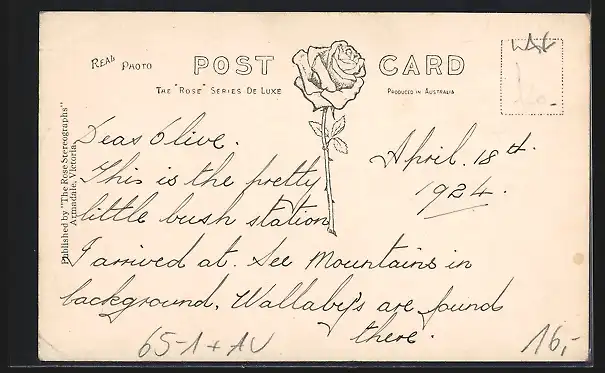 REAL PHOTO
POST CARD
THE "ROSE" SERIES DE LUXE
PRODUCED IN AUSTRALIA
Published by "The Rose Stereographs"
Armadale, Victoria
April. 18th.
1924.
Dear Olive.
This is the pretty
little bush station
I arrived at. See Mountains in
background, Wallaby's are found
there.
65-1+AU
16,-